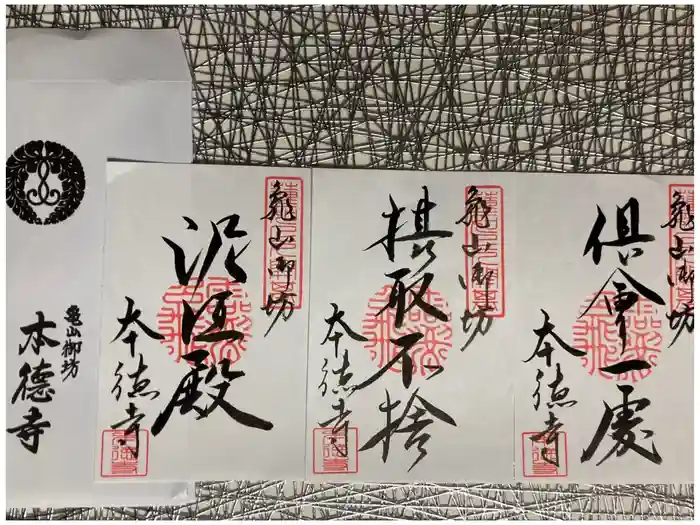 亀山御坊
本德寺
亀山御坊
泥洹殿
本德寺
亀山御坊
摂取不捨
本德寺
亀山御坊
倶會一處
本德寺